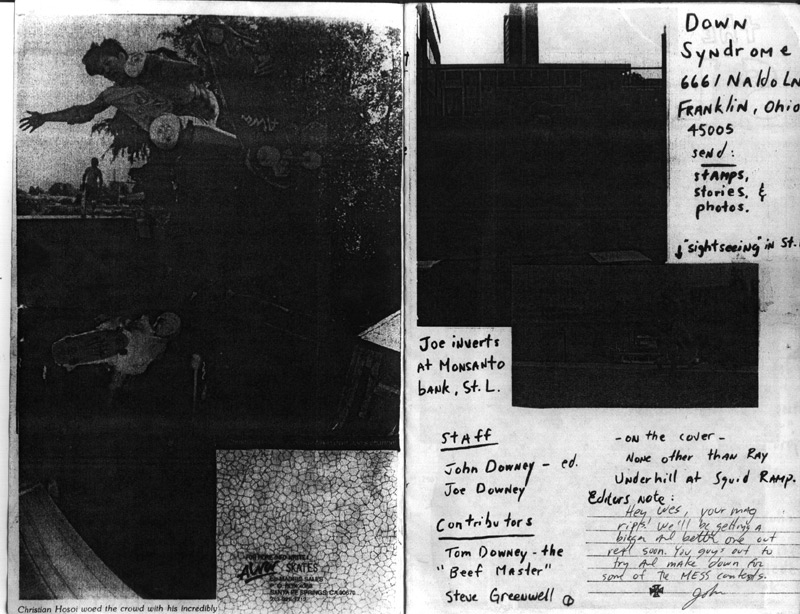 Christian Hosoi woed the crowd with his incredibly
AWW SKATES
SANTA FE SPRINGS, CA 90670
Down
Syndrome
6661 Naldo Ln
Franklin, Ohio
45005
send:
stamps,
stories, &
photos.
↓ "sightseeing" in St.
Joe inverts
at Monsanto
bank, St. L.
Staff
John Downey - ed.
Joe Downey
Contributors
Tom Downey - the
"Beef Master"
Steve Greenwell
- on the cover -
None other than Ray
Underhill at Squid Ramp.
Editors note:
Hey Wes, your mag
rips! We'll be getting a
bigger and better one out
real soon. You guys out to
try and make down for
some of the MESS contests.
John